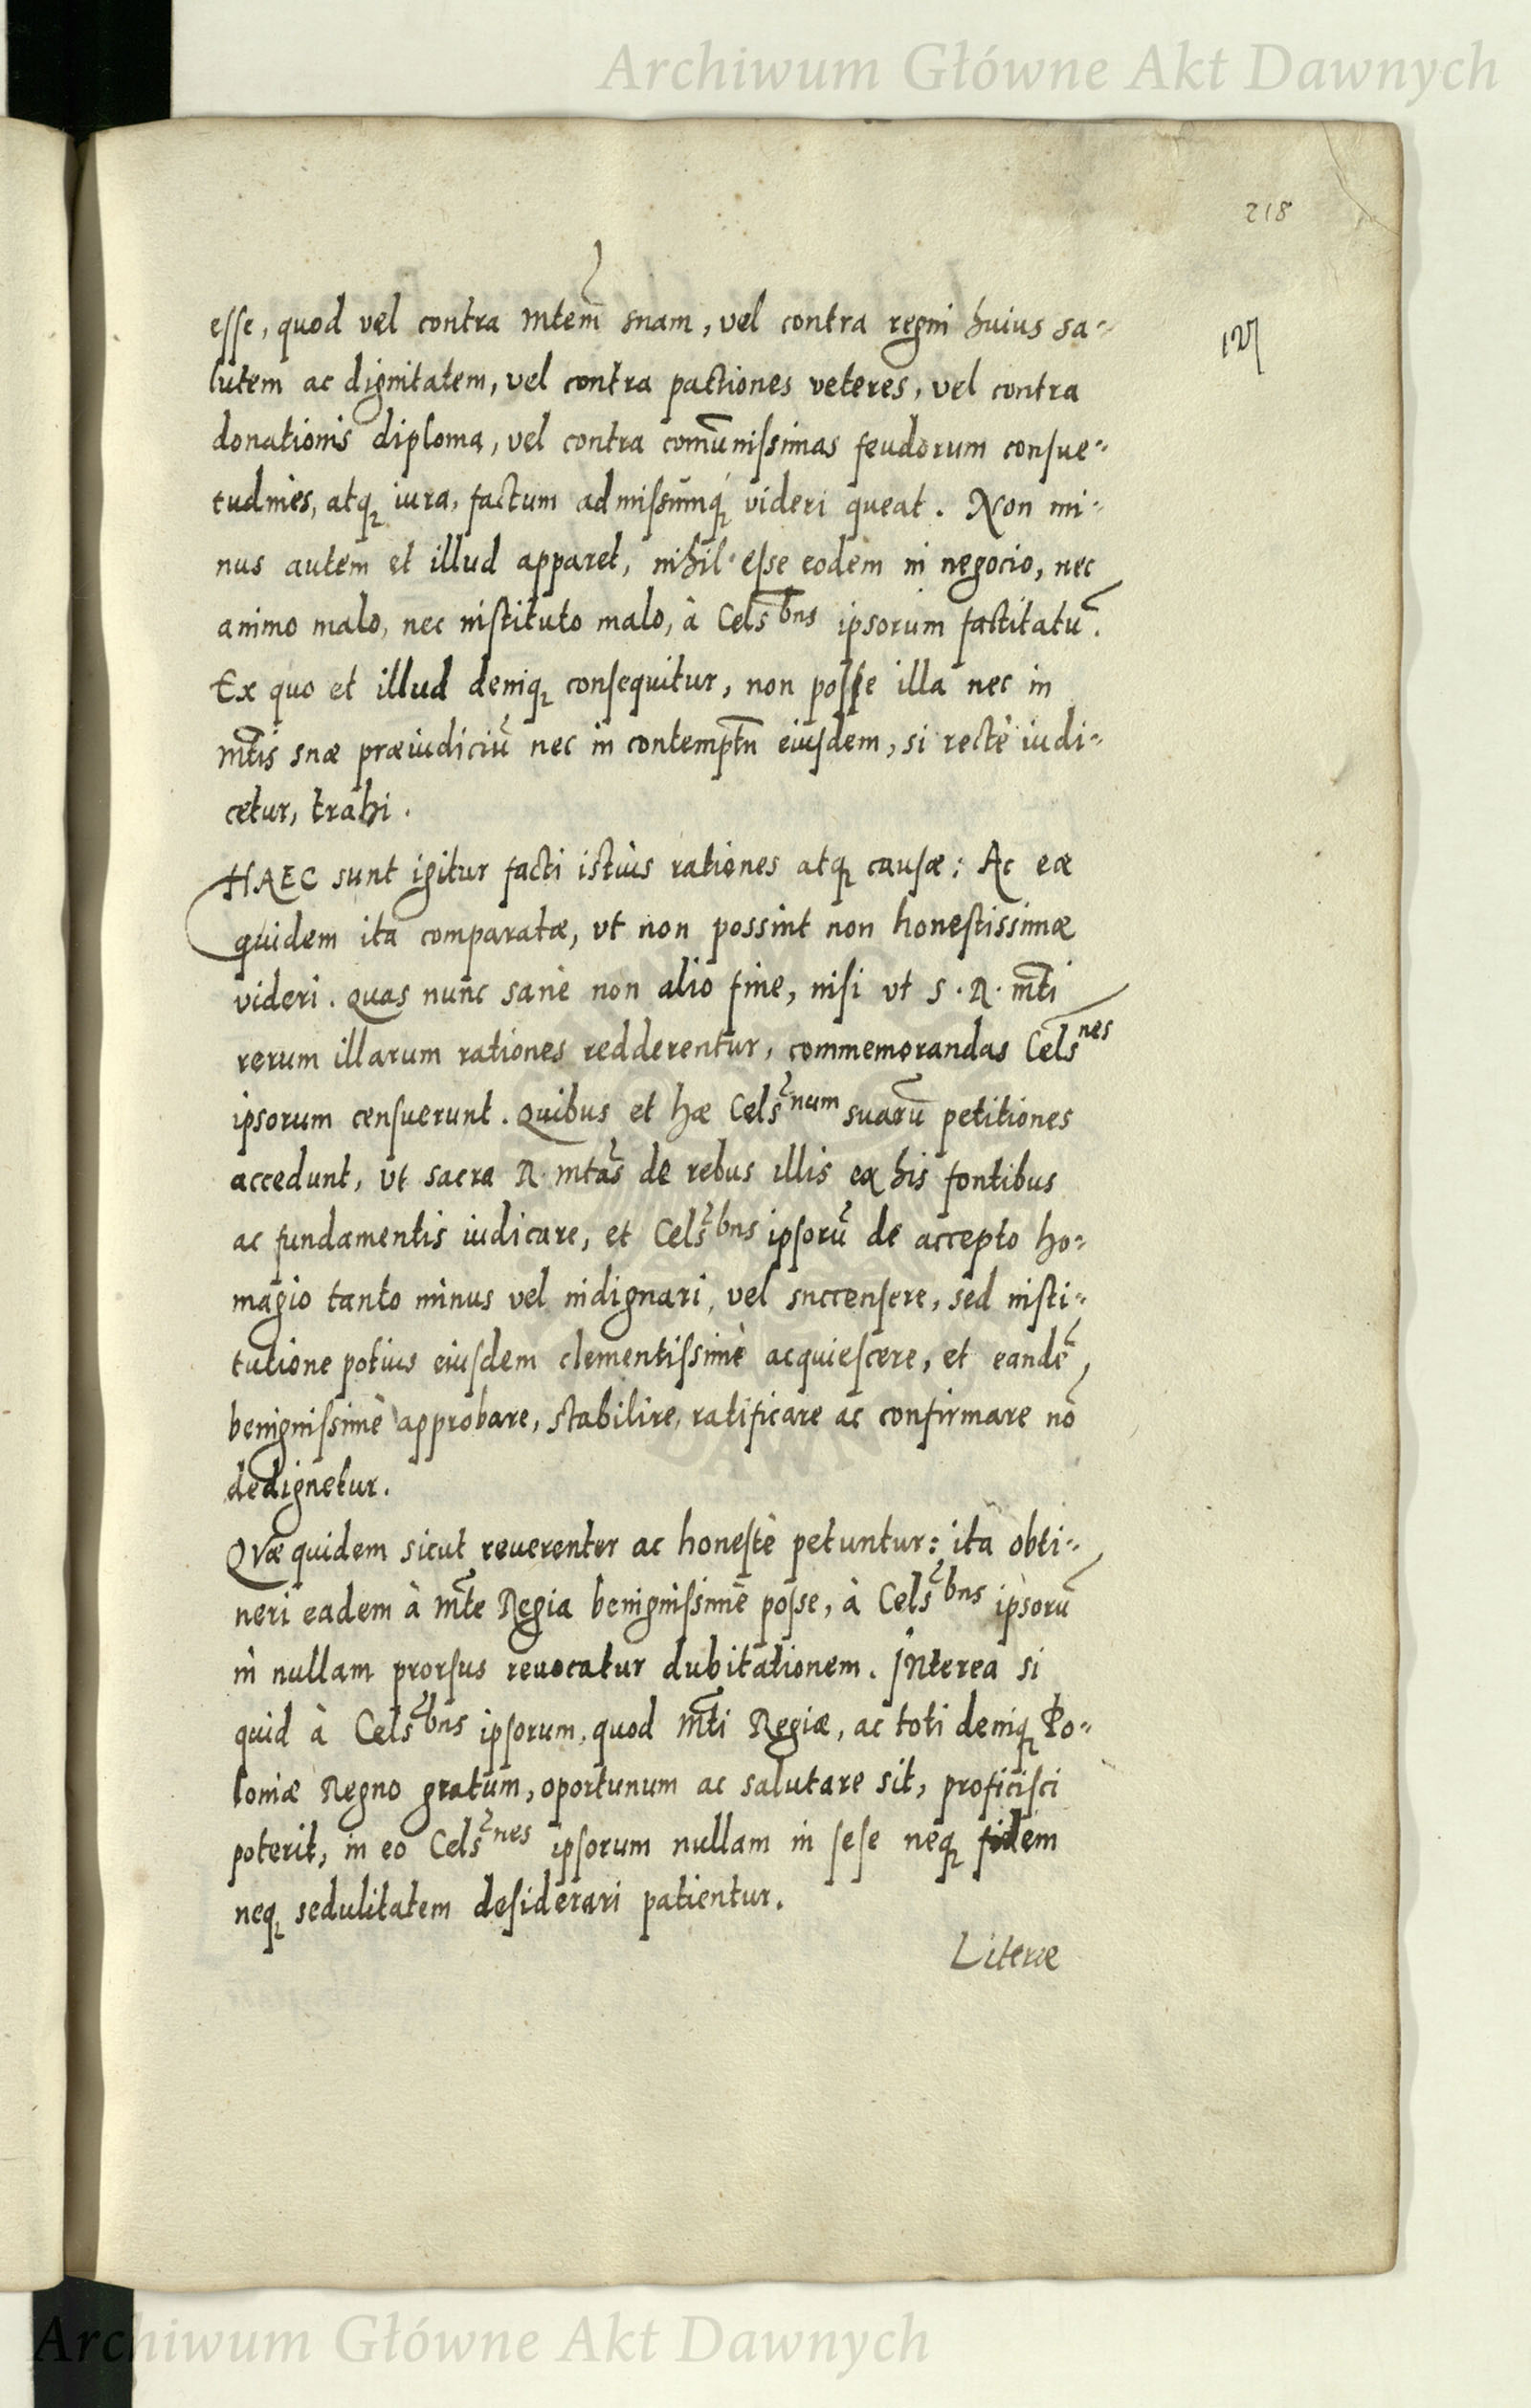 Archiwum Główne Akt Dawnych
218
127
esse, quod vel contra Mtem suam, vel contra regni huius sa-
lutem ac dignitatem, vel contra pactiones veteres, vel contra
donationis diploma, vel contra comunissimas feudorum consue-
tudines, atq iura, factum admissumq videri queat. Non mi-
nus autem et illud apparet, nihil esse eodem in negocio, nec
animo malo, nec instituto malo, à Cels bns ipsorum factitatū.
Ex quo et illud deniq consequitur, non posse illa nec in
Mtis suæ præiudiciū nec in contemptu eiusdem, si rectè iudi-
cetur, trahi.
HAEC sunt igitur facti istius rationes atq causæ: Ac eæ
quidem ita comparatæ, vt non possint non honestissimæ
videri. Quas nunc sanè non alio fine, nisi vt S. R. Mti
rerum illarum rationes redderentur, commemorandas Cels nes
ipsorum censuerunt. Quibus et hæ Cels num suarū petitiones
accedunt, vt sacra R. Mtas de rebus illis ex his fontibus
ac fundamentis iudicare, et Cels bns ipsorū de accepto ho-
magio tanto minus vel indignari, vel succensere, sed insti-
tutione potius eiusdem clementissimè acquiescere, et eandē,
benignissimè approbare, stabilire, ratificare ac confirmare nō
dedignetur.
QVæ quidem sicut reuerenter ac honestè petuntur: ita obti-
neri eadem à Mte Regia benignissimè posse, à Cels bns ipsorū
in nullam prorsus reuocatur dubitationem. INterea si
quid à Cels bns ipsorum, quod Mti Regiæ, ac toti deniq Po-
loniæ Regno gratum, oportunum ac salutare sit, proficisci
poterit, in eo Cels nes ipsorum nullam in sese neq fidem
neq sedulitatem desiderari patientur.
Literæ
Archiwum Główne Akt Dawnych